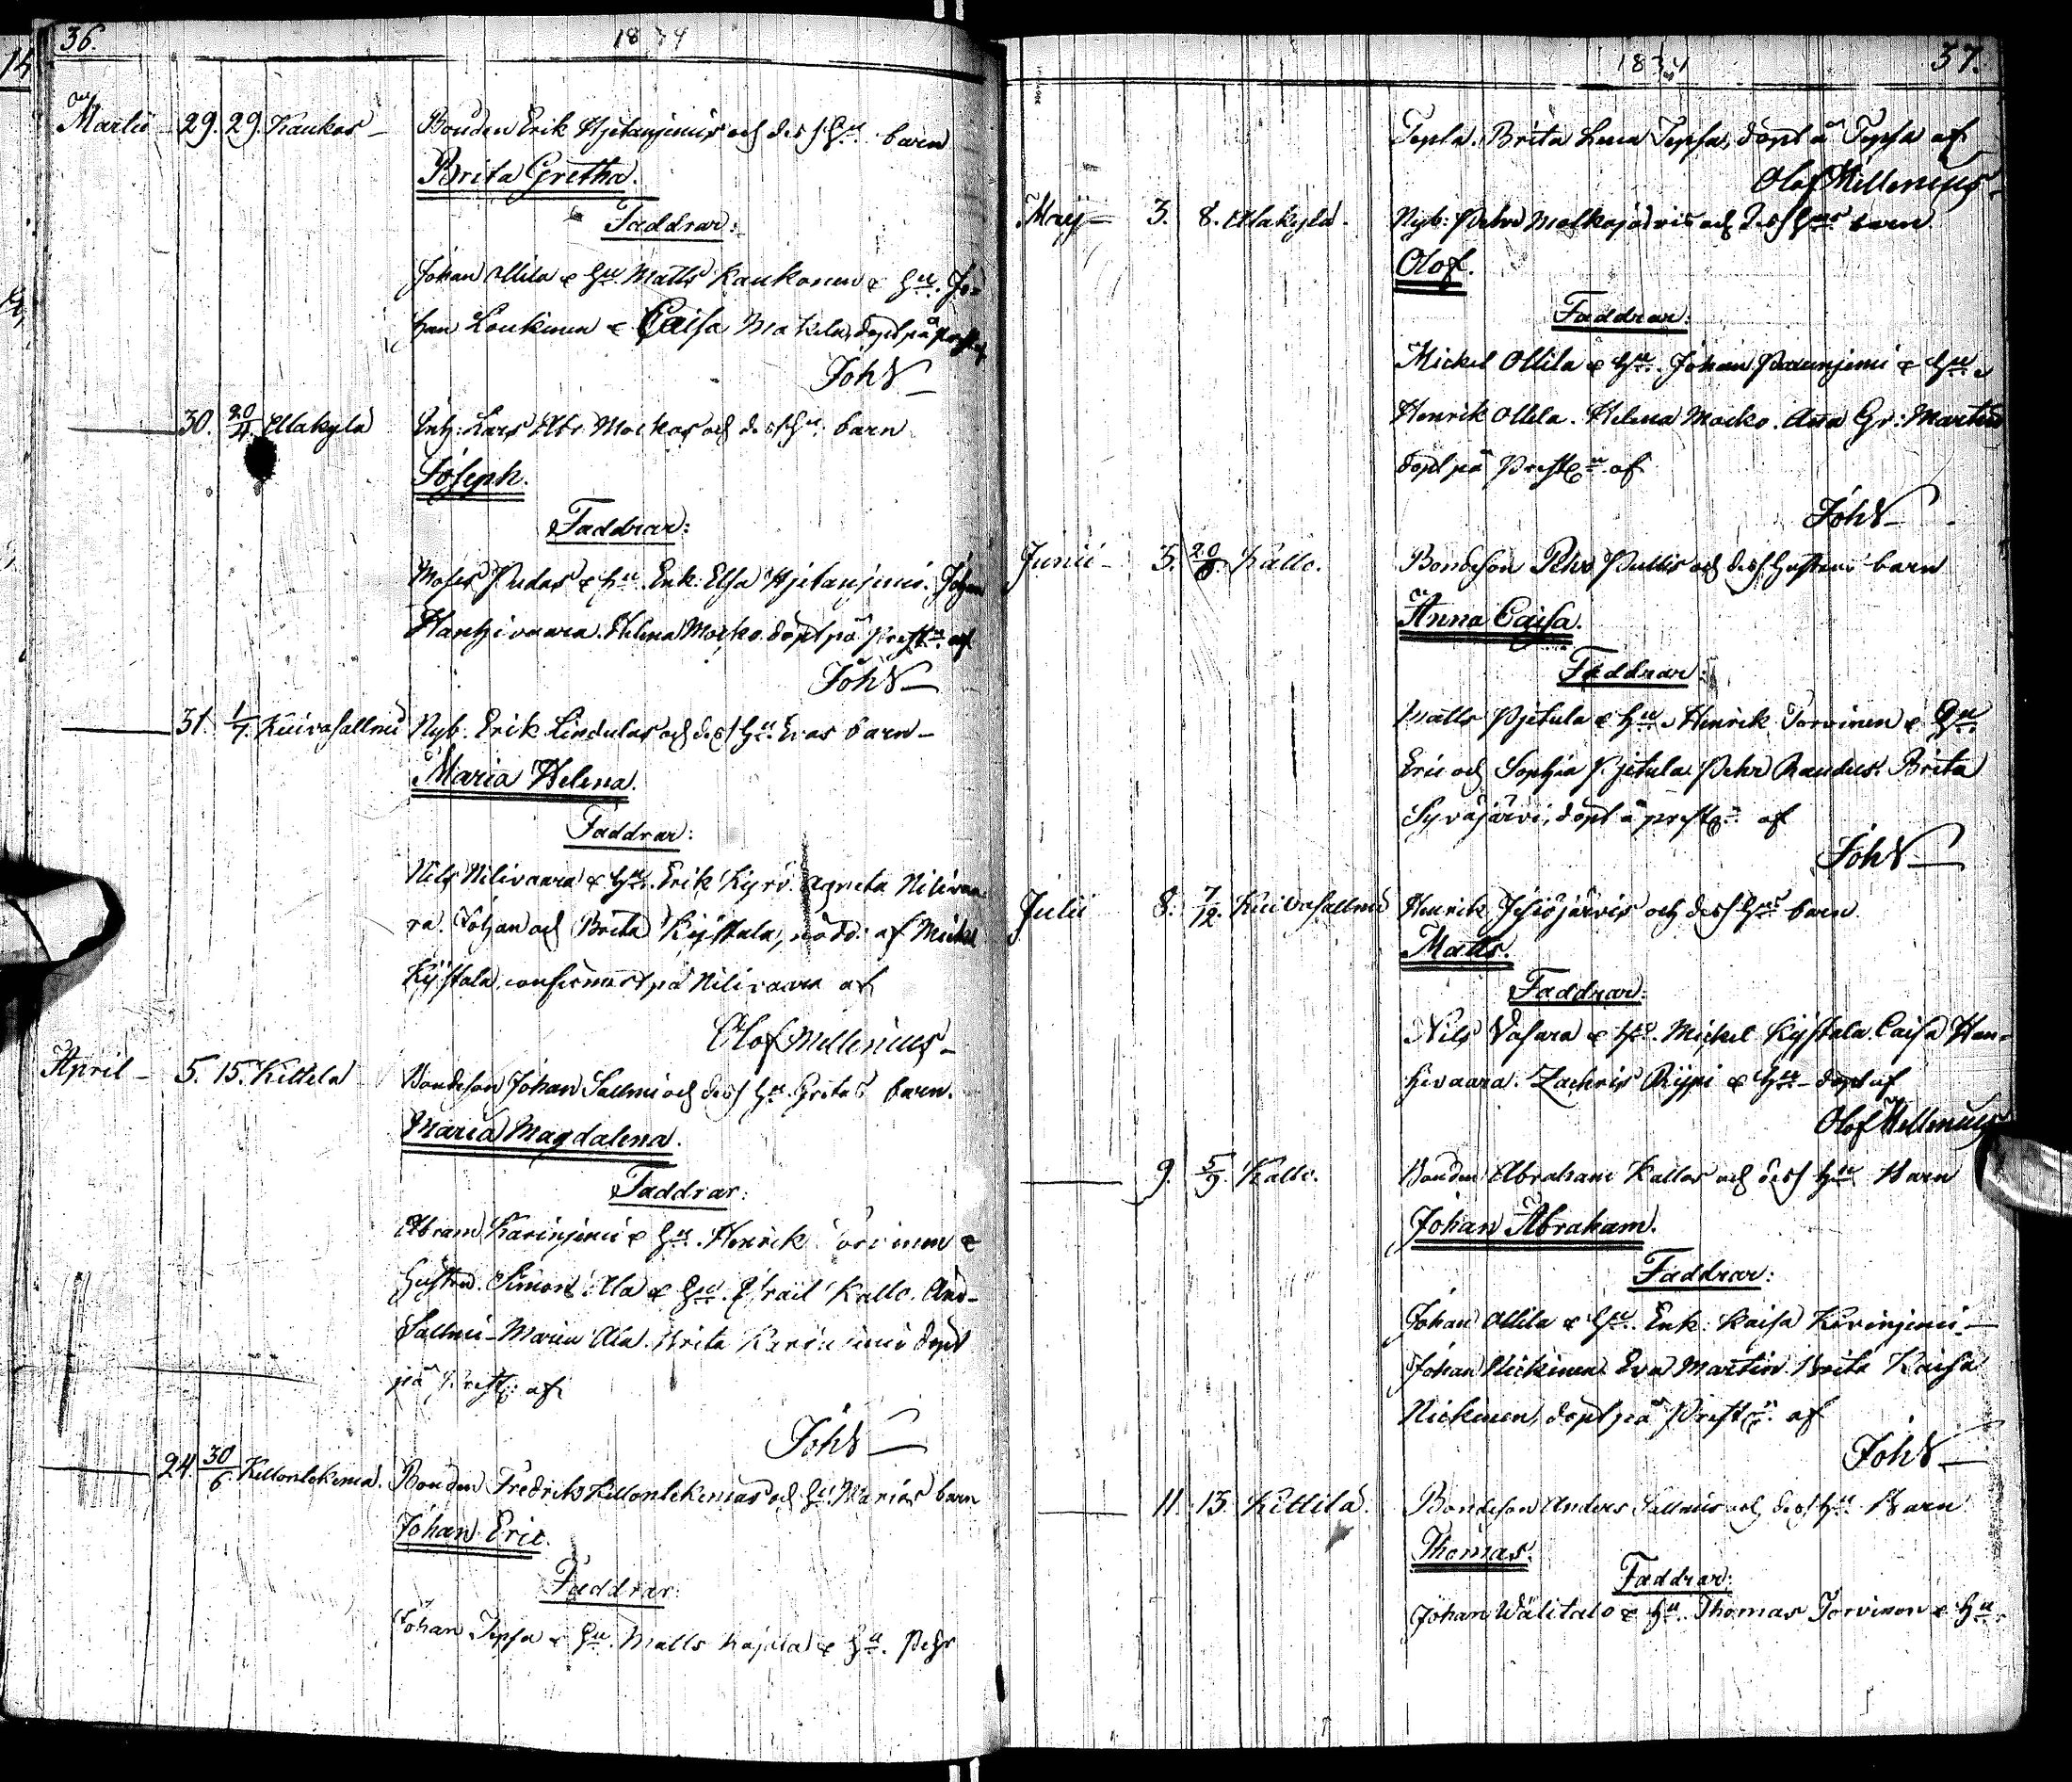 36.
1834
Martii 29. 29. Kaukos Bonden Erik Hjetanjemis och dess Hu barn
Brita Gretha.
Faddrar:
Johan Ollila & Hu. Matts Kaukonen & Hu. Jo-
han Loukinen & Caisa Makela, döpt på
Joh
30. 20/4. Allakylä Lars Abr. Mockos och dess Hu. barn
Joseph.
Faddrar:
Moses Pudas & Hu. Enk. Elsa Hjetanjemi. Johan
Hanhivaara. Helena Mocko. döpt på Prestg. af
Joh
31. 1/7. Kuivasallmi Nyb. Erik Lindulas och dess Hu. Evas barn
Maria Helena.
Faddrar:
Nils Nilivaara & Hu. Erik Kyrö. Agneta Nilivaa-
ra. Johan och Brita Kystala, nöddö: af Mickel
Kystala, confirmert på Nilivaara af
Olof Mellenius
April 5. 15. Kittela Bondeson Johan Sallmi och dess Hu. Gretas barn.
Maria Magdalena.
Faddrar:
Abram Karinjemi & Hu. Henrik Torvinen &
Hustru. Simon Ala & Hu. Israil Kallo. And-
Sallmi Maria Ala. Brita döpt
på Prestg: af
Joh
24. 30/6. Kellontekema. Bonden Fredrik Kellontekemas och Hu Marias barn
Johan Eric.
Faddrar:
Johan Tepsa & Hu. Matts & Hu. Pehr
1834
37.
Brita Lena Tepsa, döpt å Tepsa af
Olof Mellenius
Maij 3. 8. Allakylä Nyb: Pehr Molkojärvis och dess Hus barn
Olof.
Faddrar:
Mickel Ollila & Hu. Johan & Hu &
Henrik Ollila. Helena Mocko. Anna Gr: Martin
döpt på Prestg. af
Joh
Junii 5. 20/8. Kallo. Bondeson Pehr Pullis och dess Hustrus barn
Anna Caisa.
Faddrar:
Matts Pjetula & Hu & Henrik Torvinen & Hu.
Eric och Sophia Pjetula. Pehr Raudus. Brita
Syväjärvi, döpt å prestg: af
Joh
Julii 8. 7/12. Kuivasallmi Henrik Jesiöjärvis och dess Hus barn
Matts.
Faddrar:
Nils Vasara & Hu. Mickel Kystala. Caisa Han-
hivaara. Zachris Rippi & Hu döpt af
Olof Mellenius
9. 5/9. Kallo. Bonden Abraham Kallos och dess Hu Barn
Johan Abraham.
Faddrar:
Johan Ollila & Hu. Enk: Kaisa Kerinjemi
Johan Nickinen. Eva Martin. Brita Kaisa
Nickinen, döpt på Prestg. af
Joh
11. 13. Kittilä. Bondeson Anders Sallmis och dess Hu Barn
Thomas.
Faddrar:
Johan Wälitalo & Hu. Thomas Torvinen & Hu.